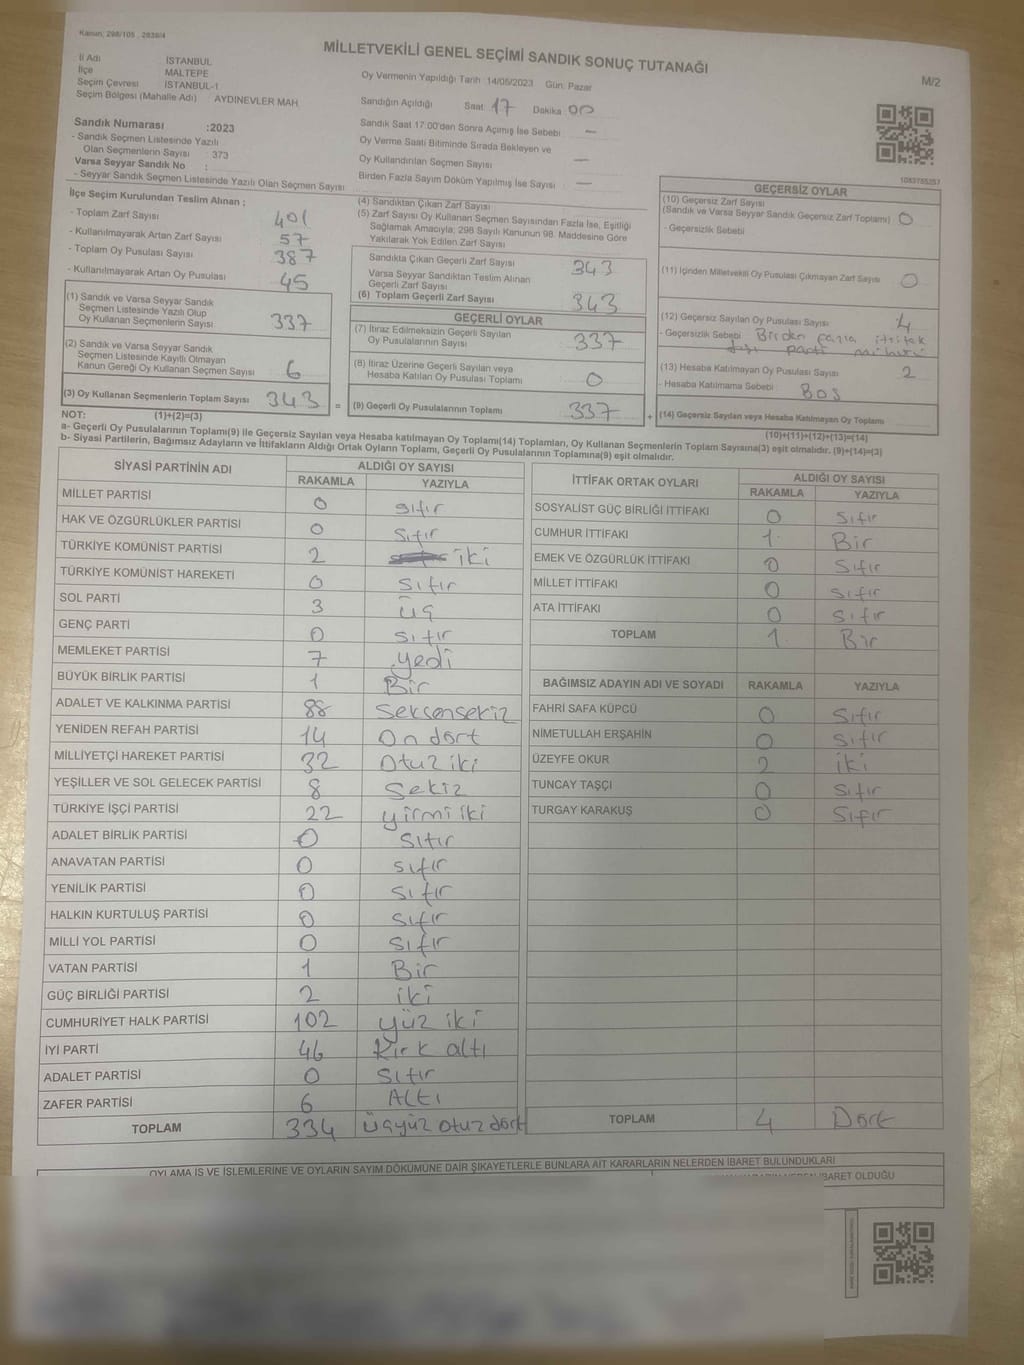 Kanun; 298/105 , 2839/4
MİLLETVEKİLİ GENEL SEÇİMİ SANDIK SONUÇ TUTANAĞI
M/2
İl Adı İSTANBUL
İlçe MALTEPE
Seçim Çevresi İSTANBUL-1
Seçim Bölgesi (Mahalle Adı) AYDINEVLER MAH.
Oy Vermenin Yapıldığı Tarih :14/05/2023 Gün: Pazar
Sandığın Açıldığı Saat: 17 Dakika 00
Sandık Saat 17:00'den Sonra Açımış İse Sebebi —
Oy Verme Saati Bitiminde Sırada Bekleyen ve
Oy Kullandırılan Seçmen Sayısı —
Birden Fazla Sayım Döküm Yapılmış İse Sayısı —
Sandık Numarası :2023
- Sandık Seçmen Listesinde Yazılı
Olan Seçmenlerin Sayısı : 373
Varsa Seyyar Sandık No :
- Seyyar Sandık Seçmen Listesinde Yazılı Olan Seçmen Sayısı
İlçe Seçim Kurulundan Teslim Alınan ;
- Toplam Zarf Sayısı 401
- Kullanılmayarak Artan Zarf Sayısı 57
- Toplam Oy Pusulası Sayısı 387
- Kullanılmayarak Artan Oy Pusulası 45
(1) Sandık ve Varsa Seyyar Sandık
Seçmen Listesinde Yazılı Olup
Oy Kullanan Seçmenlerin Sayısı 337
(2) Sandık ve Varsa Seyyar Sandık
Seçmen Listesinde Kayıtlı Olmayan
Kanun Gereği Oy Kullanan Seçmen Sayısı 6
(3) Oy Kullanan Seçmenlerin Toplam Sayısı 343 =
(4) Sandıktan Çıkan Zarf Sayısı
(5) Zarf Sayısı Oy Kullanan Seçmen Sayısından Fazla İse, Eşitliği
Sağlamak Amacıyla; 298 Sayılı Kanunun 98. Maddesine Göre
Yakılarak Yok Edilen Zarf Sayısı
Sandıkta Çıkan Geçerli Zarf Sayısı 343
Varsa Seyyar Sandıktan Teslim Alınan
Geçerli Zarf Sayısı
(6) Toplam Geçerli Zarf Sayısı 343
GEÇERLİ OYLAR
(7) İtiraz Edilmeksizin Geçerli Sayılan
Oy Pusulalarının Sayısı 337
(8) İtiraz Üzerine Geçerli Sayılan veya
Hesaba Katılan Oy Pusulası Toplamı 0
(9) Geçerli Oy Pusulalarının Toplamı 337 +
1083785257
GEÇERSİZ OYLAR
(10) Geçersiz Zarf Sayısı
(Sandık ve Varsa Seyyar Sandık Geçersiz Zarf Toplamı) 0
- Geçersizlik Sebebi
(11) İçinden Milletvekili Oy Pusulası Çıkmayan Zarf Sayısı 0
(12) Geçersiz Sayılan Oy Pusulası Sayısı 4
- Geçersizlik Sebebi Birden fazla ittifak
dışı parti mühürü
(13) Hesaba Katılmayan Oy Pusulası Sayısı 2
- Hesaba Katılmama Sebebi BOŞ
(14) Geçersiz Sayılan veya Hesaba Katılmayan Oy Toplamı
(10)+(11)+(12)+(13)=(14)
NOT: (1)+(2)=(3)
a- Geçerli Oy Pusulalarının Toplamı(9) ile Geçersiz Sayılan veya Hesaba katılmayan Oy Toplamı(14) Toplamları, Oy Kullanan Seçmenlerin Toplam Sayısına(3) eşit olmalıdır. (9)+(14)=(3)
b- Siyasi Partilerin, Bağımsız Adayların ve İttifakların Aldığı Ortak Oyların Toplamı, Geçerli Oy Pusulalarının Toplamına(9) eşit olmalıdır.
SİYASİ PARTİNİN ADI ALDIĞI OY SAYISI
RAKAMLA YAZIYLA
MİLLET PARTİSİ 0 sıfır
HAK VE ÖZGÜRLÜKLER PARTİSİ 0 Sıfır
TÜRKİYE KOMÜNİST PARTİSİ 2 iki
TÜRKİYE KOMÜNİST HAREKETİ 0 Sıfır
SOL PARTİ 3 üç
GENÇ PARTİ 0 Sıfır
MEMLEKET PARTİSİ 7 yedi
BÜYÜK BİRLİK PARTİSİ 1 Bir
ADALET VE KALKINMA PARTİSİ 88 Seksensekiz
YENİDEN REFAH PARTİSİ 14 On dört
MİLLİYETÇİ HAREKET PARTİSİ 32 Otuz iki
YEŞİLLER VE SOL GELECEK PARTİSİ 8 Sekiz
TÜRKİYE İŞÇİ PARTİSİ 22 yirmi iki
ADALET BİRLİK PARTİSİ 0 Sıfır
ANAVATAN PARTİSİ 0 sıfır
YENİLİK PARTİSİ 0 Sıfır
HALKIN KURTULUŞ PARTİSİ 0 Sıfır
MİLLİ YOL PARTİSİ 0 Sıfır
VATAN PARTİSİ 1 Bir
GÜÇ BİRLİĞİ PARTİSİ 2 iki
CUMHURİYET HALK PARTİSİ 102 yüz iki
İYİ PARTİ 46 Kırk altı
ADALET PARTİSİ 0 Sıfır
ZAFER PARTİSİ 6 Altı
TOPLAM 334 üçyüz otuz dört
İTTİFAK ORTAK OYLARI ALDIĞI OY SAYISI
RAKAMLA YAZIYLA
SOSYALİST GÜÇ BİRLİĞİ İTTİFAKI 0 Sıfır
CUMHUR İTTİFAKI 1 Bir
EMEK VE ÖZGÜRLÜK İTTİFAKI 0 Sıfır
MİLLET İTTİFAKI 0 Sıfır
ATA İTTİFAKI 0 Sıfır
TOPLAM 1 Bir
BAĞIMSIZ ADAYIN ADI VE SOYADI RAKAMLA YAZIYLA
FAHRİ SAFA KÜPCÜ 0 Sıfır
NİMETULLAH ERŞAHİN 0 Sıfır
ÜZEYFE OKUR 2 iki
TUNCAY TAŞÇI 0 Sıfır
TURGAY KARAKUŞ 0 Sıfır
TOPLAM 4 Dört
OYLAMA İŞ VE İŞLEMLERİNE VE OYLARIN SAYIM DÖKÜMÜNE DAİR ŞİKAYETLERLE BUNLARA AİT KARARLARIN NELERDEN İBARET BULUNDUKLARI
İBARET OLDUĞU